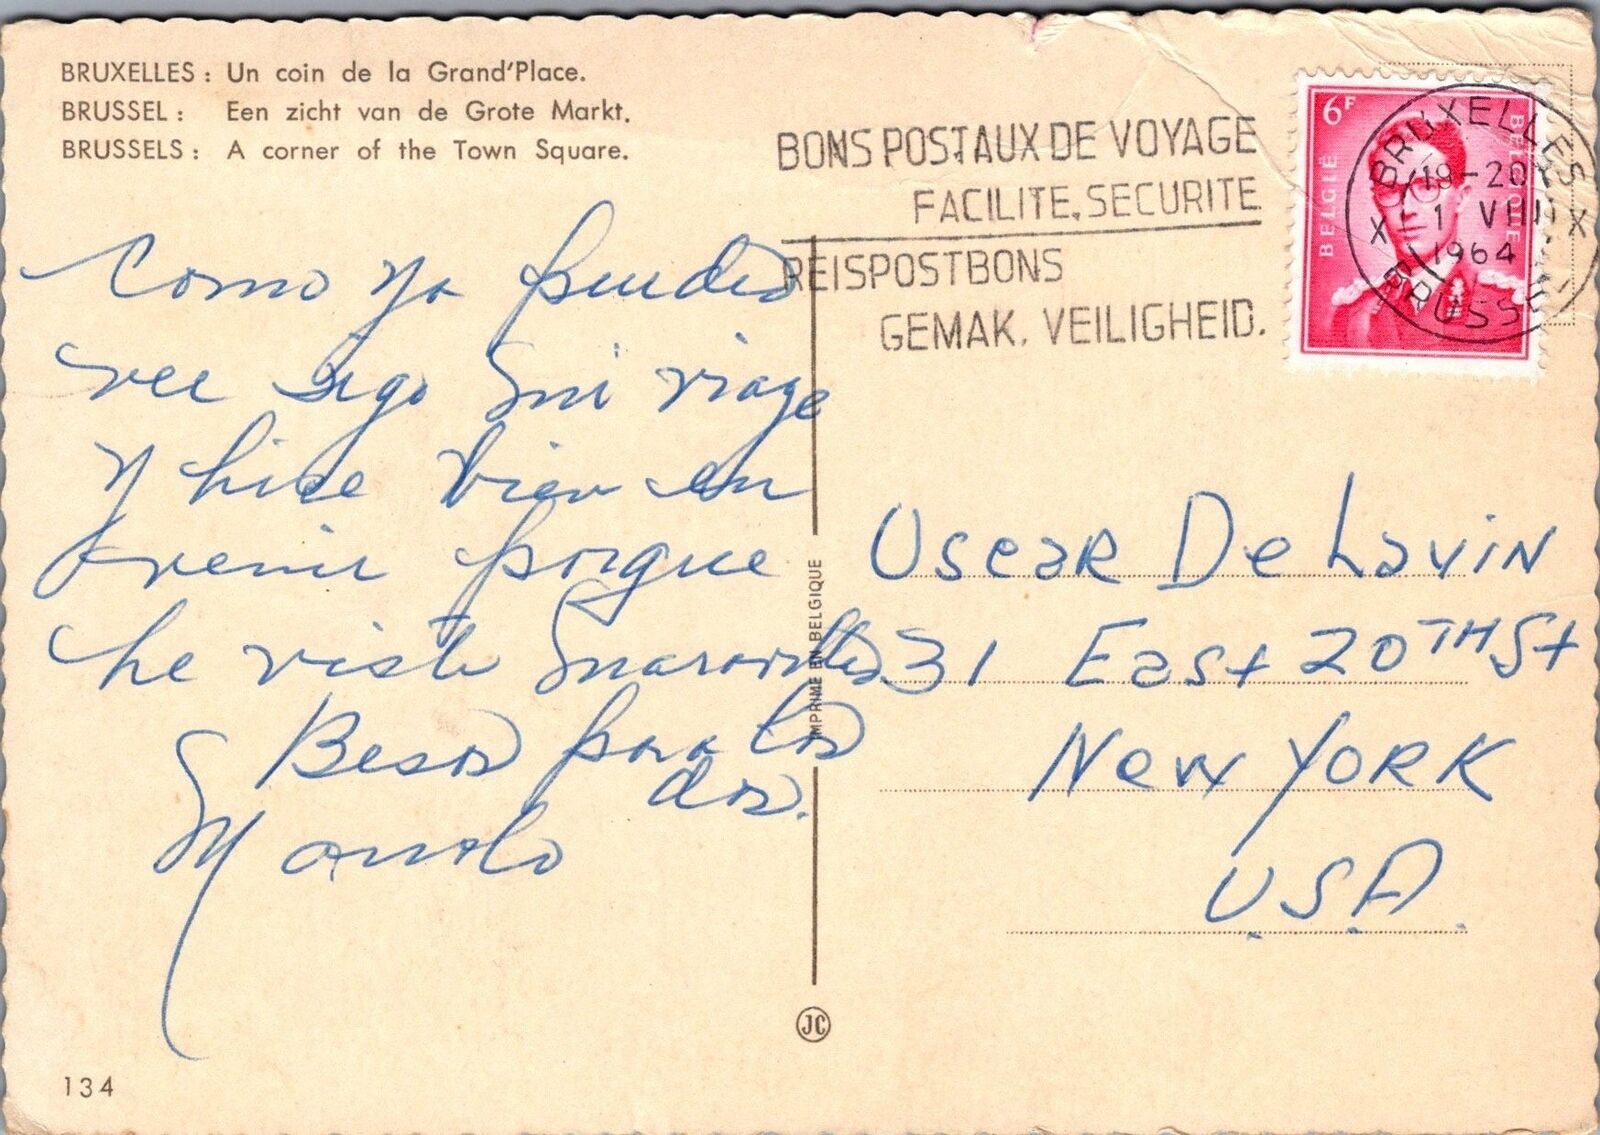 BRUXELLES : Un coin de la Grand'Place.
BRUSSEL : Een zicht van de Grote Markt.
BRUSSELS : A corner of the Town Square.
BONS POSTAUX DE VOYAGE
FACILITE, SECURITE
REISPOSTBONS
GEMAK. VEILIGHEID.
6F
BELGIË
BELGIQUE
BRUXELLES
19-20
X 1 VIII X
1964
BRUSSEL
Como ya puedes
ver sigo mi viaje
y hice bien en
venir porque
he visto maravillas
Besos para los
dos.
Manolo
IMPRIMÉ EN BELGIQUE
Oscar De Lavin
31 East 20TH St
New York
U.S.A.
JC
134